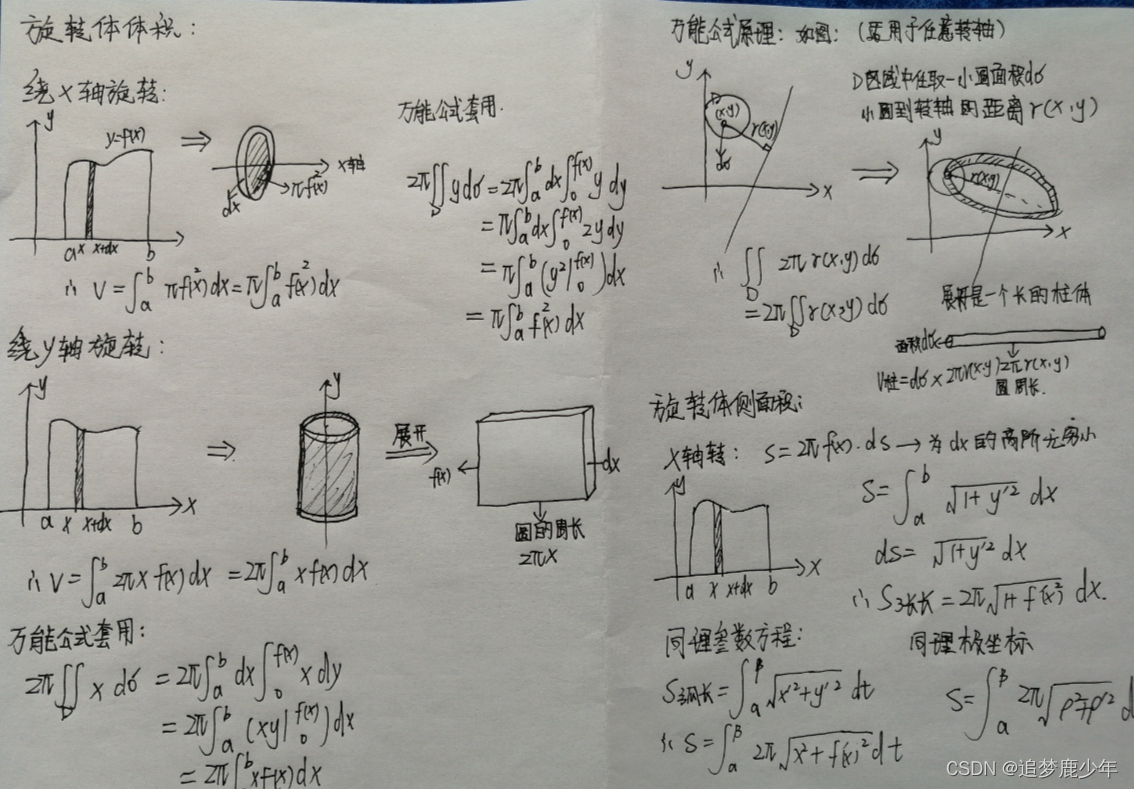 旋转体体积：
绕X轴旋转：
y
y=f(x)
a x x+dx b
dx
πf²(x)
x轴
∴ V=∫_a^b πf²(x)dx=π∫_a^b f²(x)dx
万能公式套用.
2π∬_D ydσ=2π∫_a^b dx∫_0^f(x) y dy
=π∫_a^b dx∫_0^f(x) 2y dy
=π∫_a^b (y²|_0^f(x))dx
=π∫_a^b f²(x)dx
绕y轴旋转：
y
a x x+dx b
x
y
展开
f(x)
dx
圆的周长
2πx
∴ V=∫_a^b 2πx f(x)dx =2π∫_a^b xf(x)dx
万能公式套用：
2π∬_D x dσ =2π∫_a^b dx∫_0^f(x) x dy
=2π∫_a^b (xy|_0^f(x))dx
=2π∫_a^b xf(x)dx
万能公式原理：如图：（适用于任意转轴）
D区域中任取一小圆面积dσ
小圆到转轴的距离r(x,y)
y
D
(x,y)
r(x,y)
dσ
x
y
r(x,y)
x
∴ ∬_D 2πr(x,y)dσ
=2π∬_D r(x,y)dσ
展开是一个长的柱体
面积dσ
2πr(x,y)
V柱=dσ×2πr(x,y)
圆周长.
旋转体侧面积：
X轴转： S=2πf(x)·ds→为dx的高阶无穷小
y
a x x+dx b
x
S=∫_a^b √(1+y'²) dx
ds= √(1+y'²) dx
∴S弧长=2π√(1+f(x)²) dx.
同理参数方程：
S弧长=∫_α^β √(x'²+y'²) dt
∴ S=∫_α^β 2π√(x²+f(x)²)dt
同理极坐标
S=∫_α^β 2π√(ρ²+ρ'²) d
CSDN @追梦鹿少年